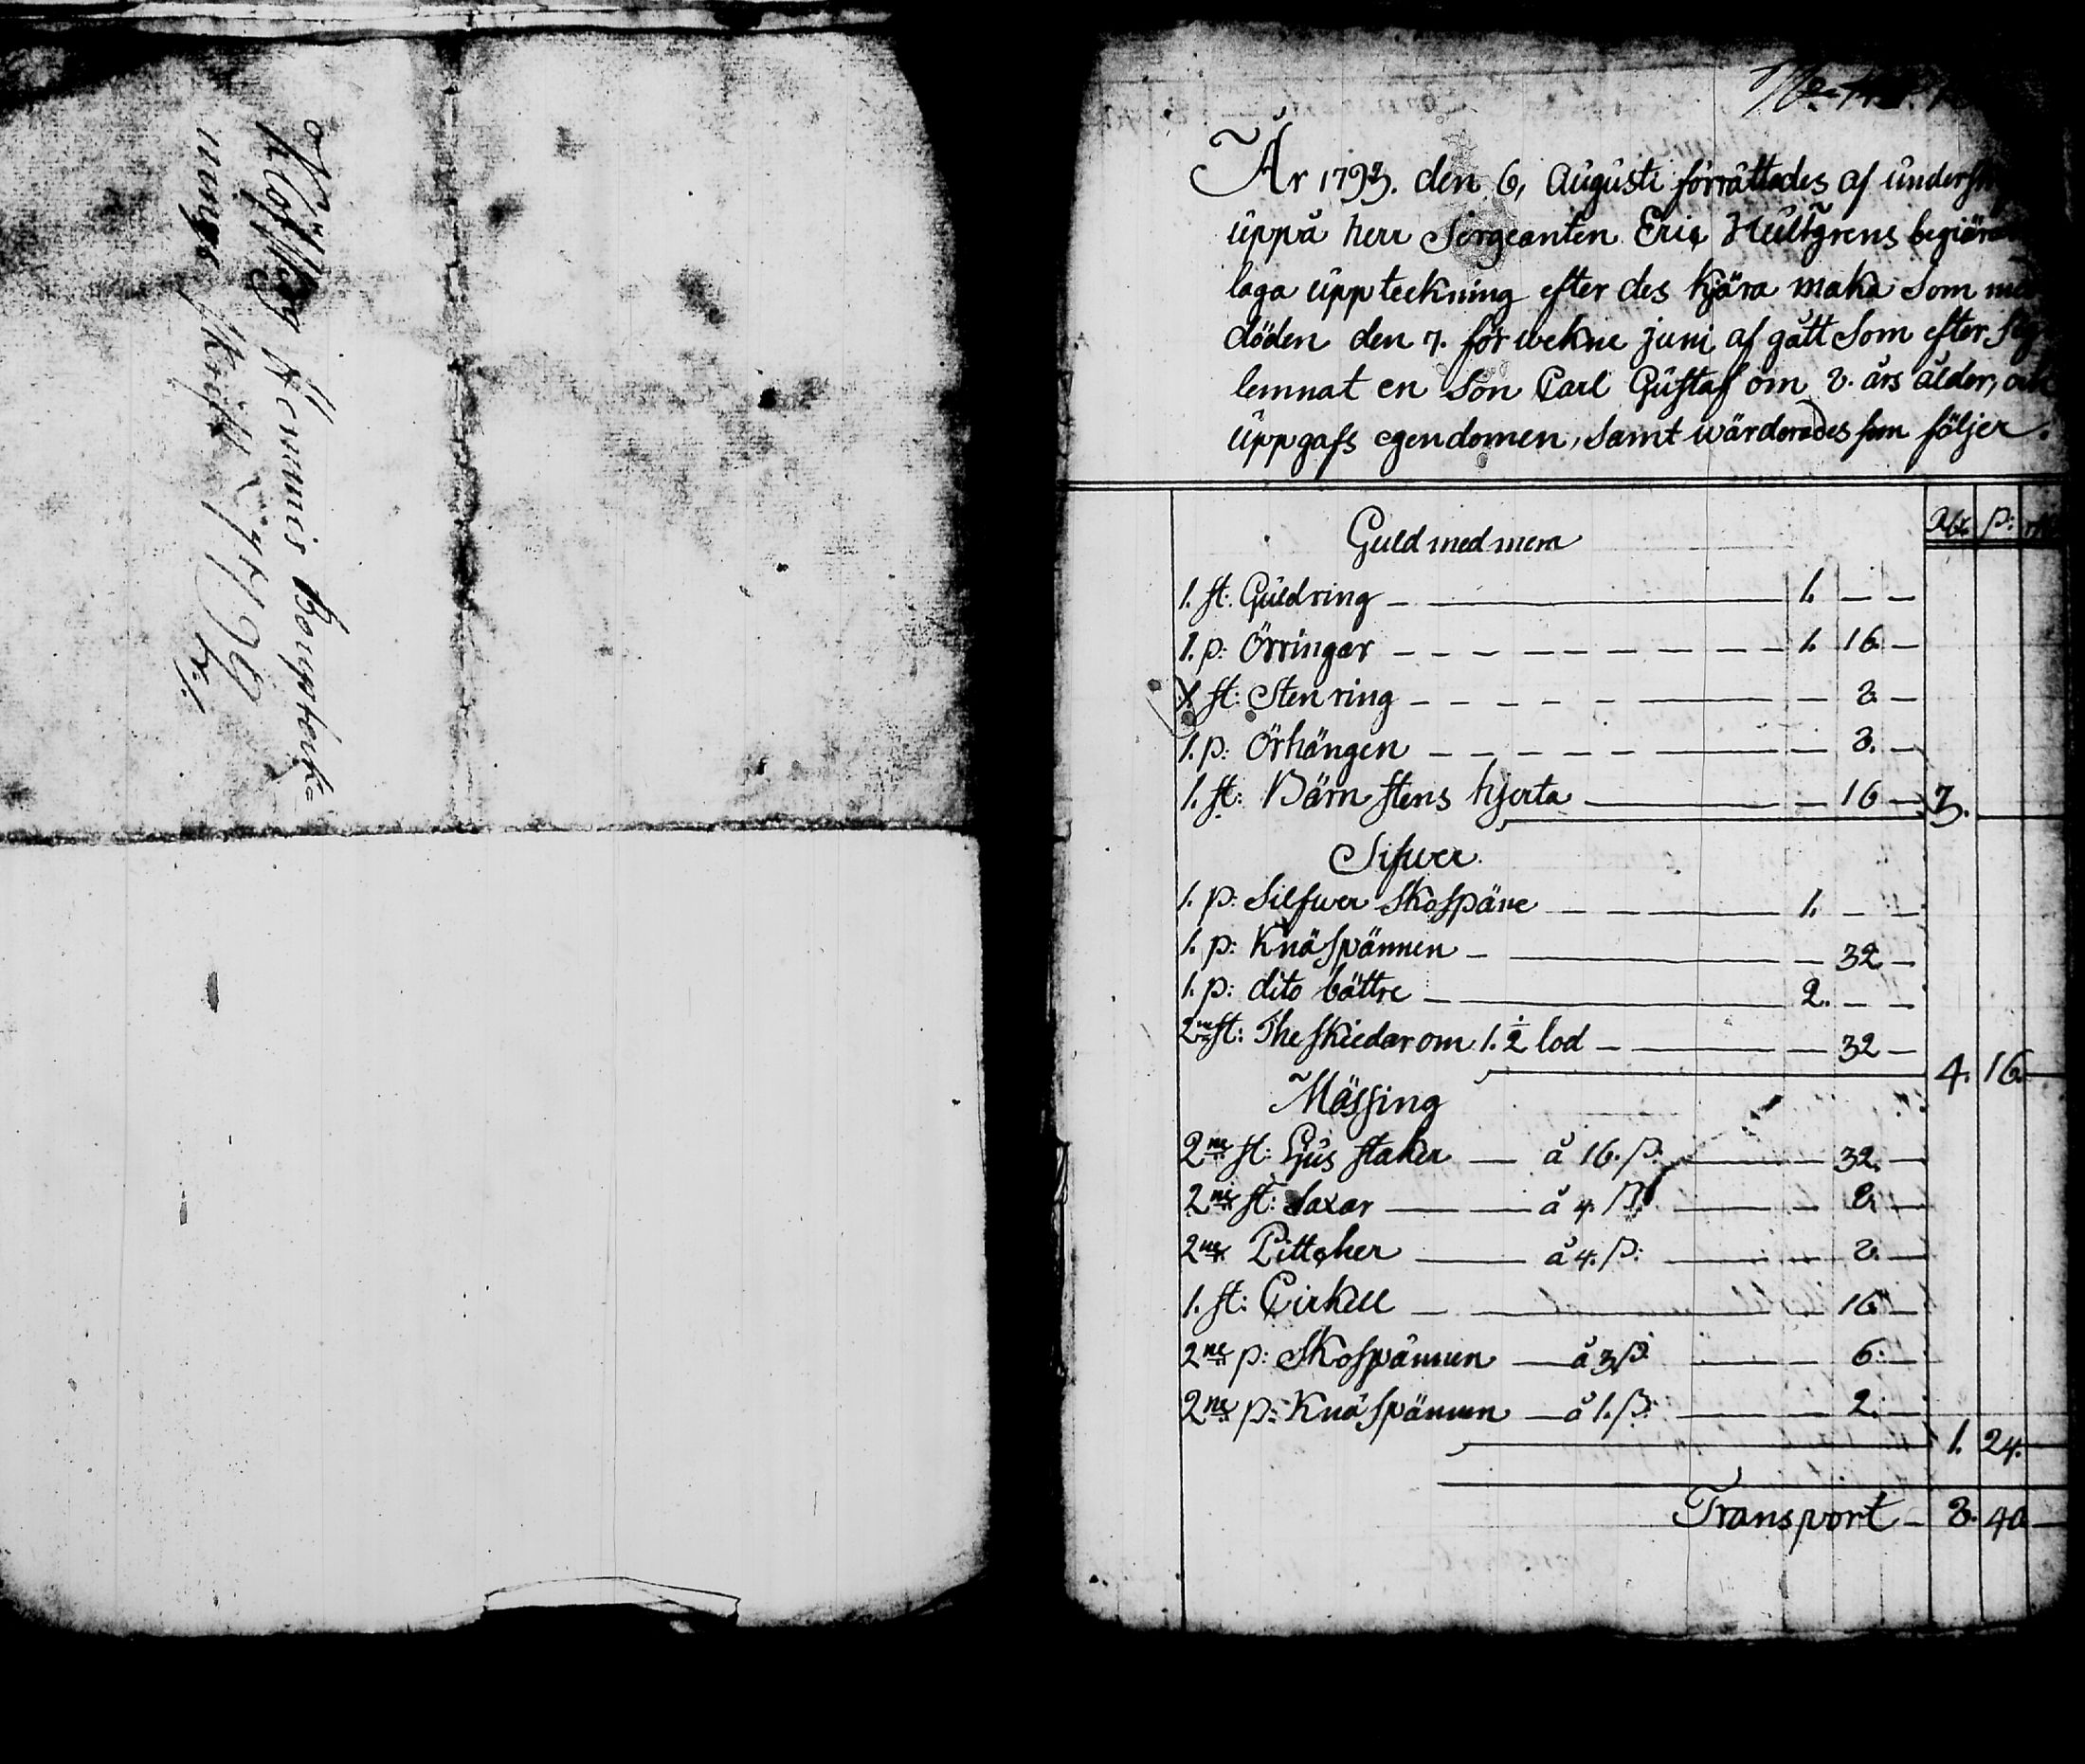 Hemmes Bouptek=
nings
År 1793. den 6, Augusti förrättades af
uppå herr Sergeanten Eric Hultgrens
laga uppteckning efter des kjära maka Som
döden den 7. för wekne juni af gått Som efter sig
lemnat en Son Carl Gustaf om 8. års ålder, och
uppgafs egendomen, Samt wärderades som följer.
p:
Guld med mera
1. st: Guldring — 1. — —
1. p: Örringar — 1. 16. —
1 st: Sten ring — — 8 —
1. p: Örhängen — — 8. —
1. st: Bärn stens hjerta — — 16 — 3.
Sifwer
1. p: Silfwer Skospäne — 1. — —
1. p: Knäspännen — — 32 —
1. p: dito bättre — 2. — —
2ne st: The skiedar om 1. 1/2 lod — — 32 —
4. 16. —
Mässing
2ne st: Ljus staker — å 16. ß. — 32. —
2ne st: Saxar — å 4. ß. — 8. —
2ne — å 4. ß: — 8. —
1. st: Cirkell — — 16 —
2ne p: Skospännen — å 3 ß — 6. —
2ne p: Knäspännen — å 1. ß: — 2. —
1. 24. —
Transport — 8. 40 —